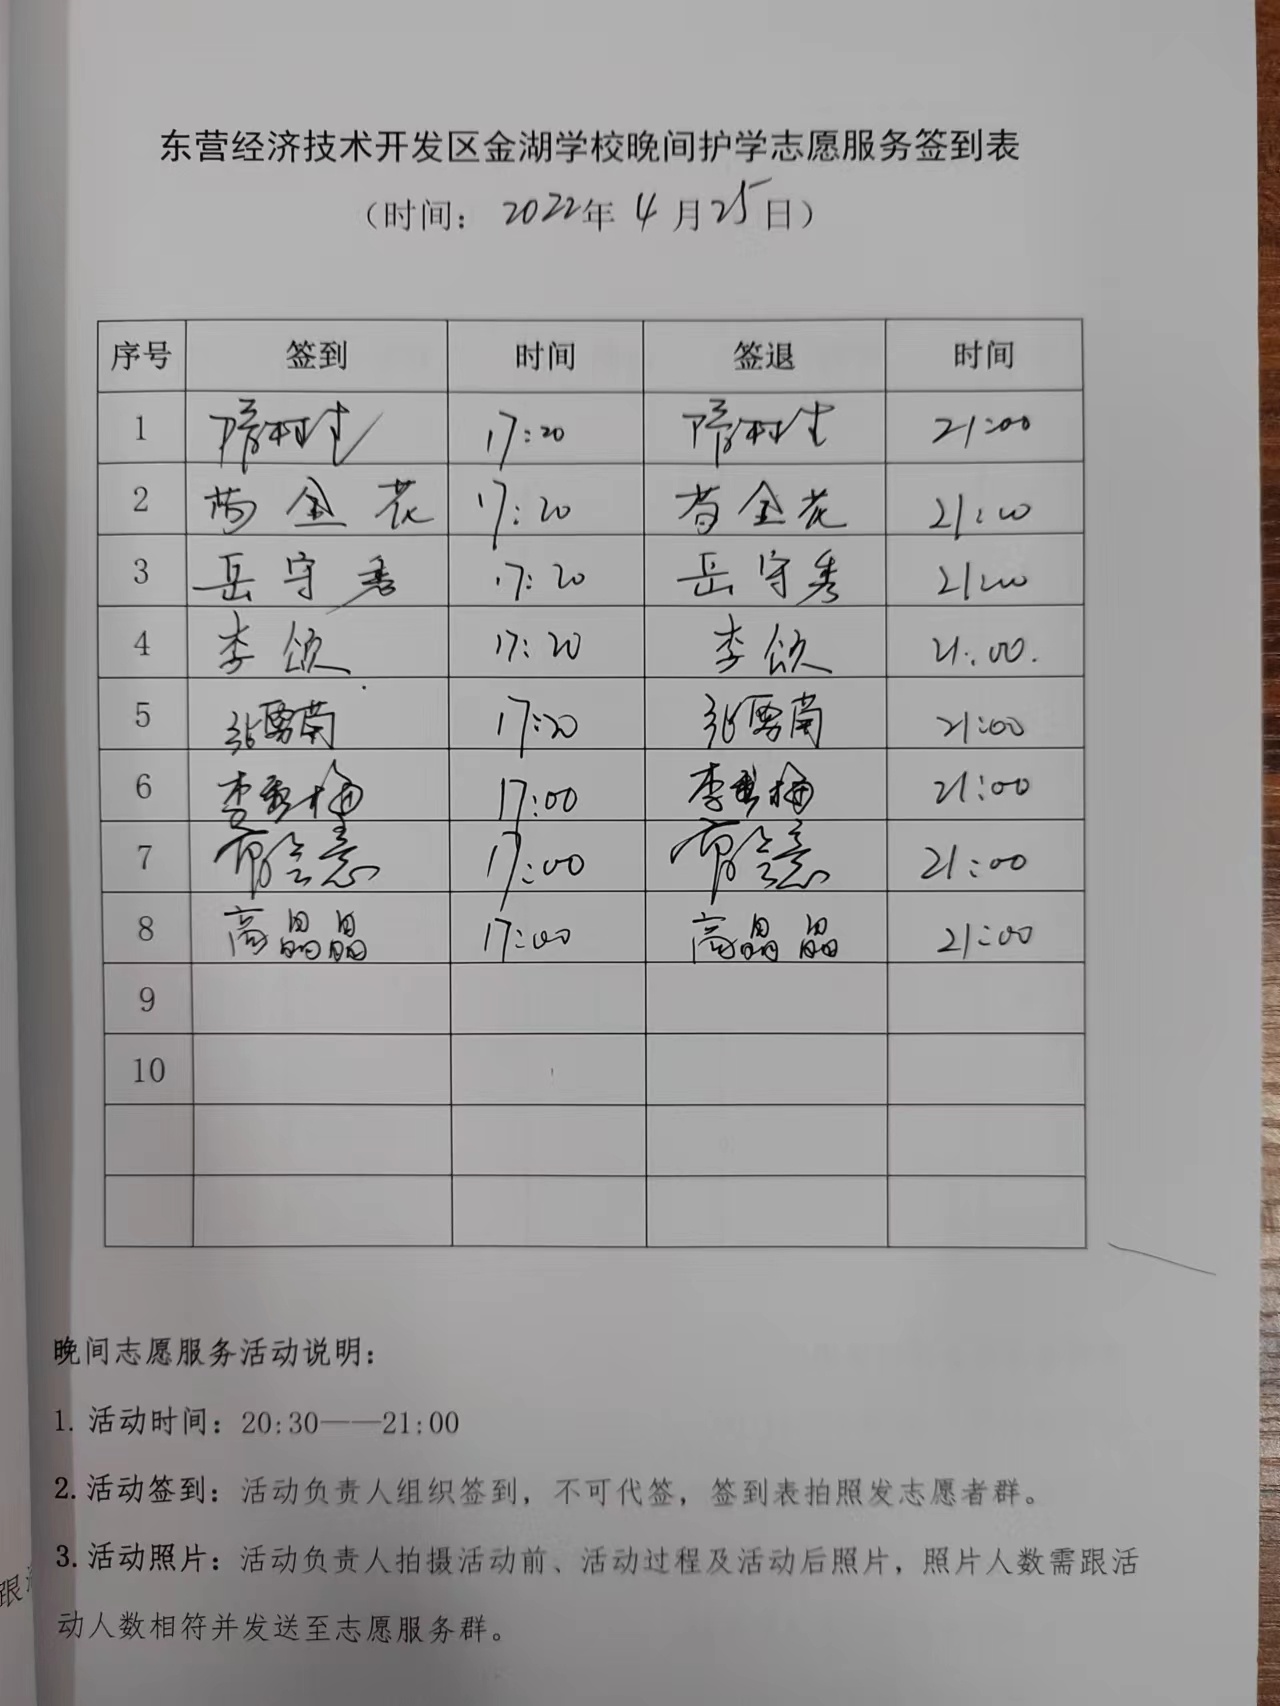 东营经济技术开发区金湖学校晚间护学志愿服务签到表
（时间：2022年4月25日）
序号 签到 时间 签退 时间
1 17:20 21:00
2 金花 17:20 金花 21:00
3 岳守秀 17:20 岳守秀 21:00
4 李颂 17:20 李颂 21:00.
5 张雪菊 17:20 张雪菊 21:00
6 李秀梅 17:00 李秀梅 21:00
7 17:00 21:00
8 高晶晶 17:00 高晶晶 21:00
9
10
晚间志愿服务活动说明：
1. 活动时间：20:30——21:00
2. 活动签到：活动负责人组织签到，不可代签，签到表拍照发志愿者群。
3. 活动照片：活动负责人拍摄活动前、活动过程及活动后照片，照片人数需跟活
动人数相符并发送至志愿服务群。
跟